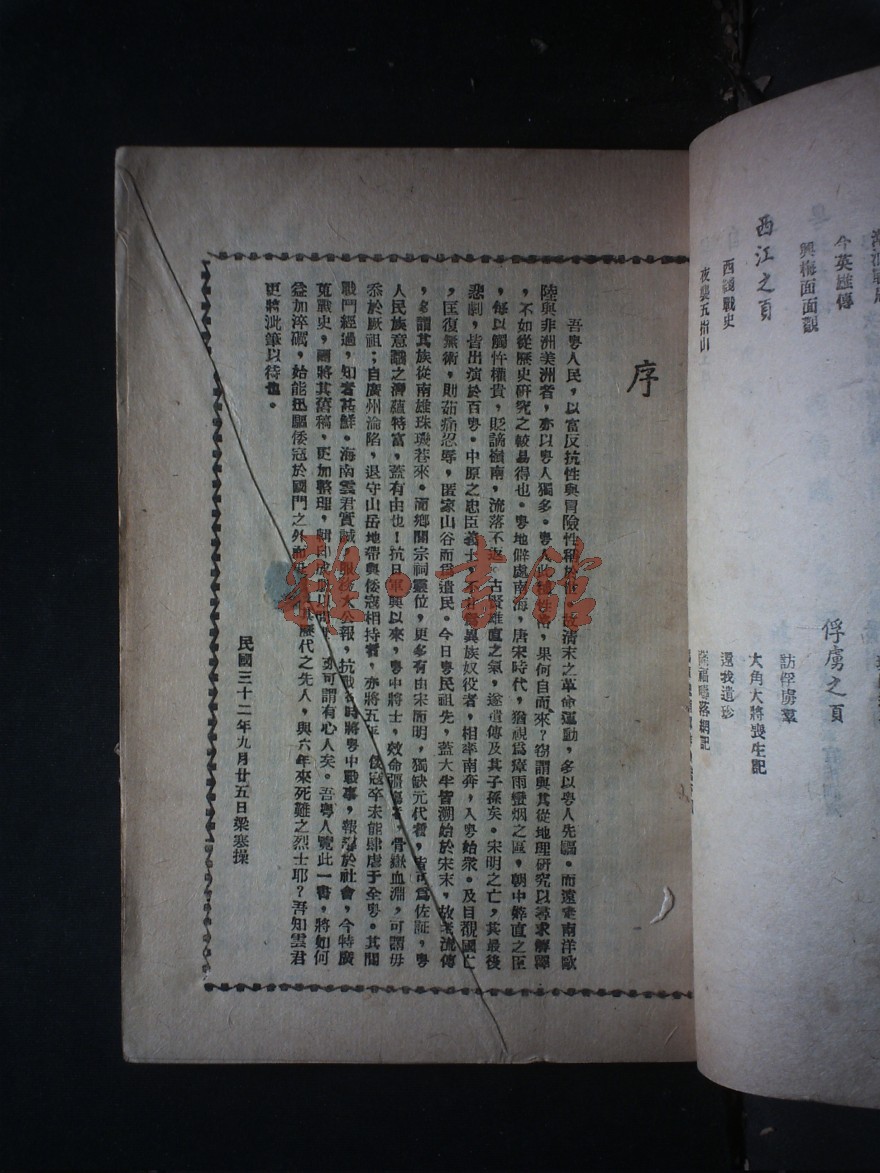 序
吾粵人民，以富反抗性與冒險性稱於世，故清末之革命運動，多以粵人先驅。而遠走南洋歐
陸與非洲美洲者，亦以粵人獨多。粵人此種性格，果何自而來？竊謂與其從地理研究以尋求解釋
，不如從歷史研究之較易得也。粵地僻處南海，唐宋時代，猶視為瘴雨蠻烟之區，朝中鯁直之臣
，每以觸忤權貴，貶謫嶺南，流落不返。古賢雄直之氣，遂遺傳及其子孫矣。宋明之亡，其最後
悲劇，皆出演於百粵。中原之忠臣義士，不甘為異族奴役者，相率南奔，入粵始衆。及目覩國亡
，匡復無術，則茹痛忍辱，匿家山谷而為遺民。今日粵民祖先，蓋大半皆溯始於宋末，故老流傳
，多謂其族從南雄珠璣巷來。而鄉間宗祠靈位，更多有由宋而明，獨缺元代者，皆可為佐証，粵
人民族意識之潛蘊特富，蓋有由也！抗日軍興以來，粵中將士，效命疆場者，骨嶽血淵，可謂毋
忝於厥祖；自廣州淪陷，退守山岳地帶與倭寇相持者，亦將五年，倭寇卒未能肆虐于全粵。其間
戰鬥經過，知者甚鮮。海南雲君實誠，服務大公報，抗戰時將粵中戰事，報導於社會，今特廣
蒐戰史，並將其舊稿，更加整理，輯印成 可謂有心人矣。吾粵人覽此一書，將如何
益加淬礪，始能迅驅倭寇於國門之外而 其歷代之先人，與六年來死難之烈士耶？吾知雲君
更將泚筆以待也。
民國三十二年九月廿五日梁寒操
今英雄傳
興梅面面觀
西江之頁
西綫戰史
夜襲五指山
俘虜之頁
訪俘虜羣
大角大將喪生記
還我遺珍
雅·書館